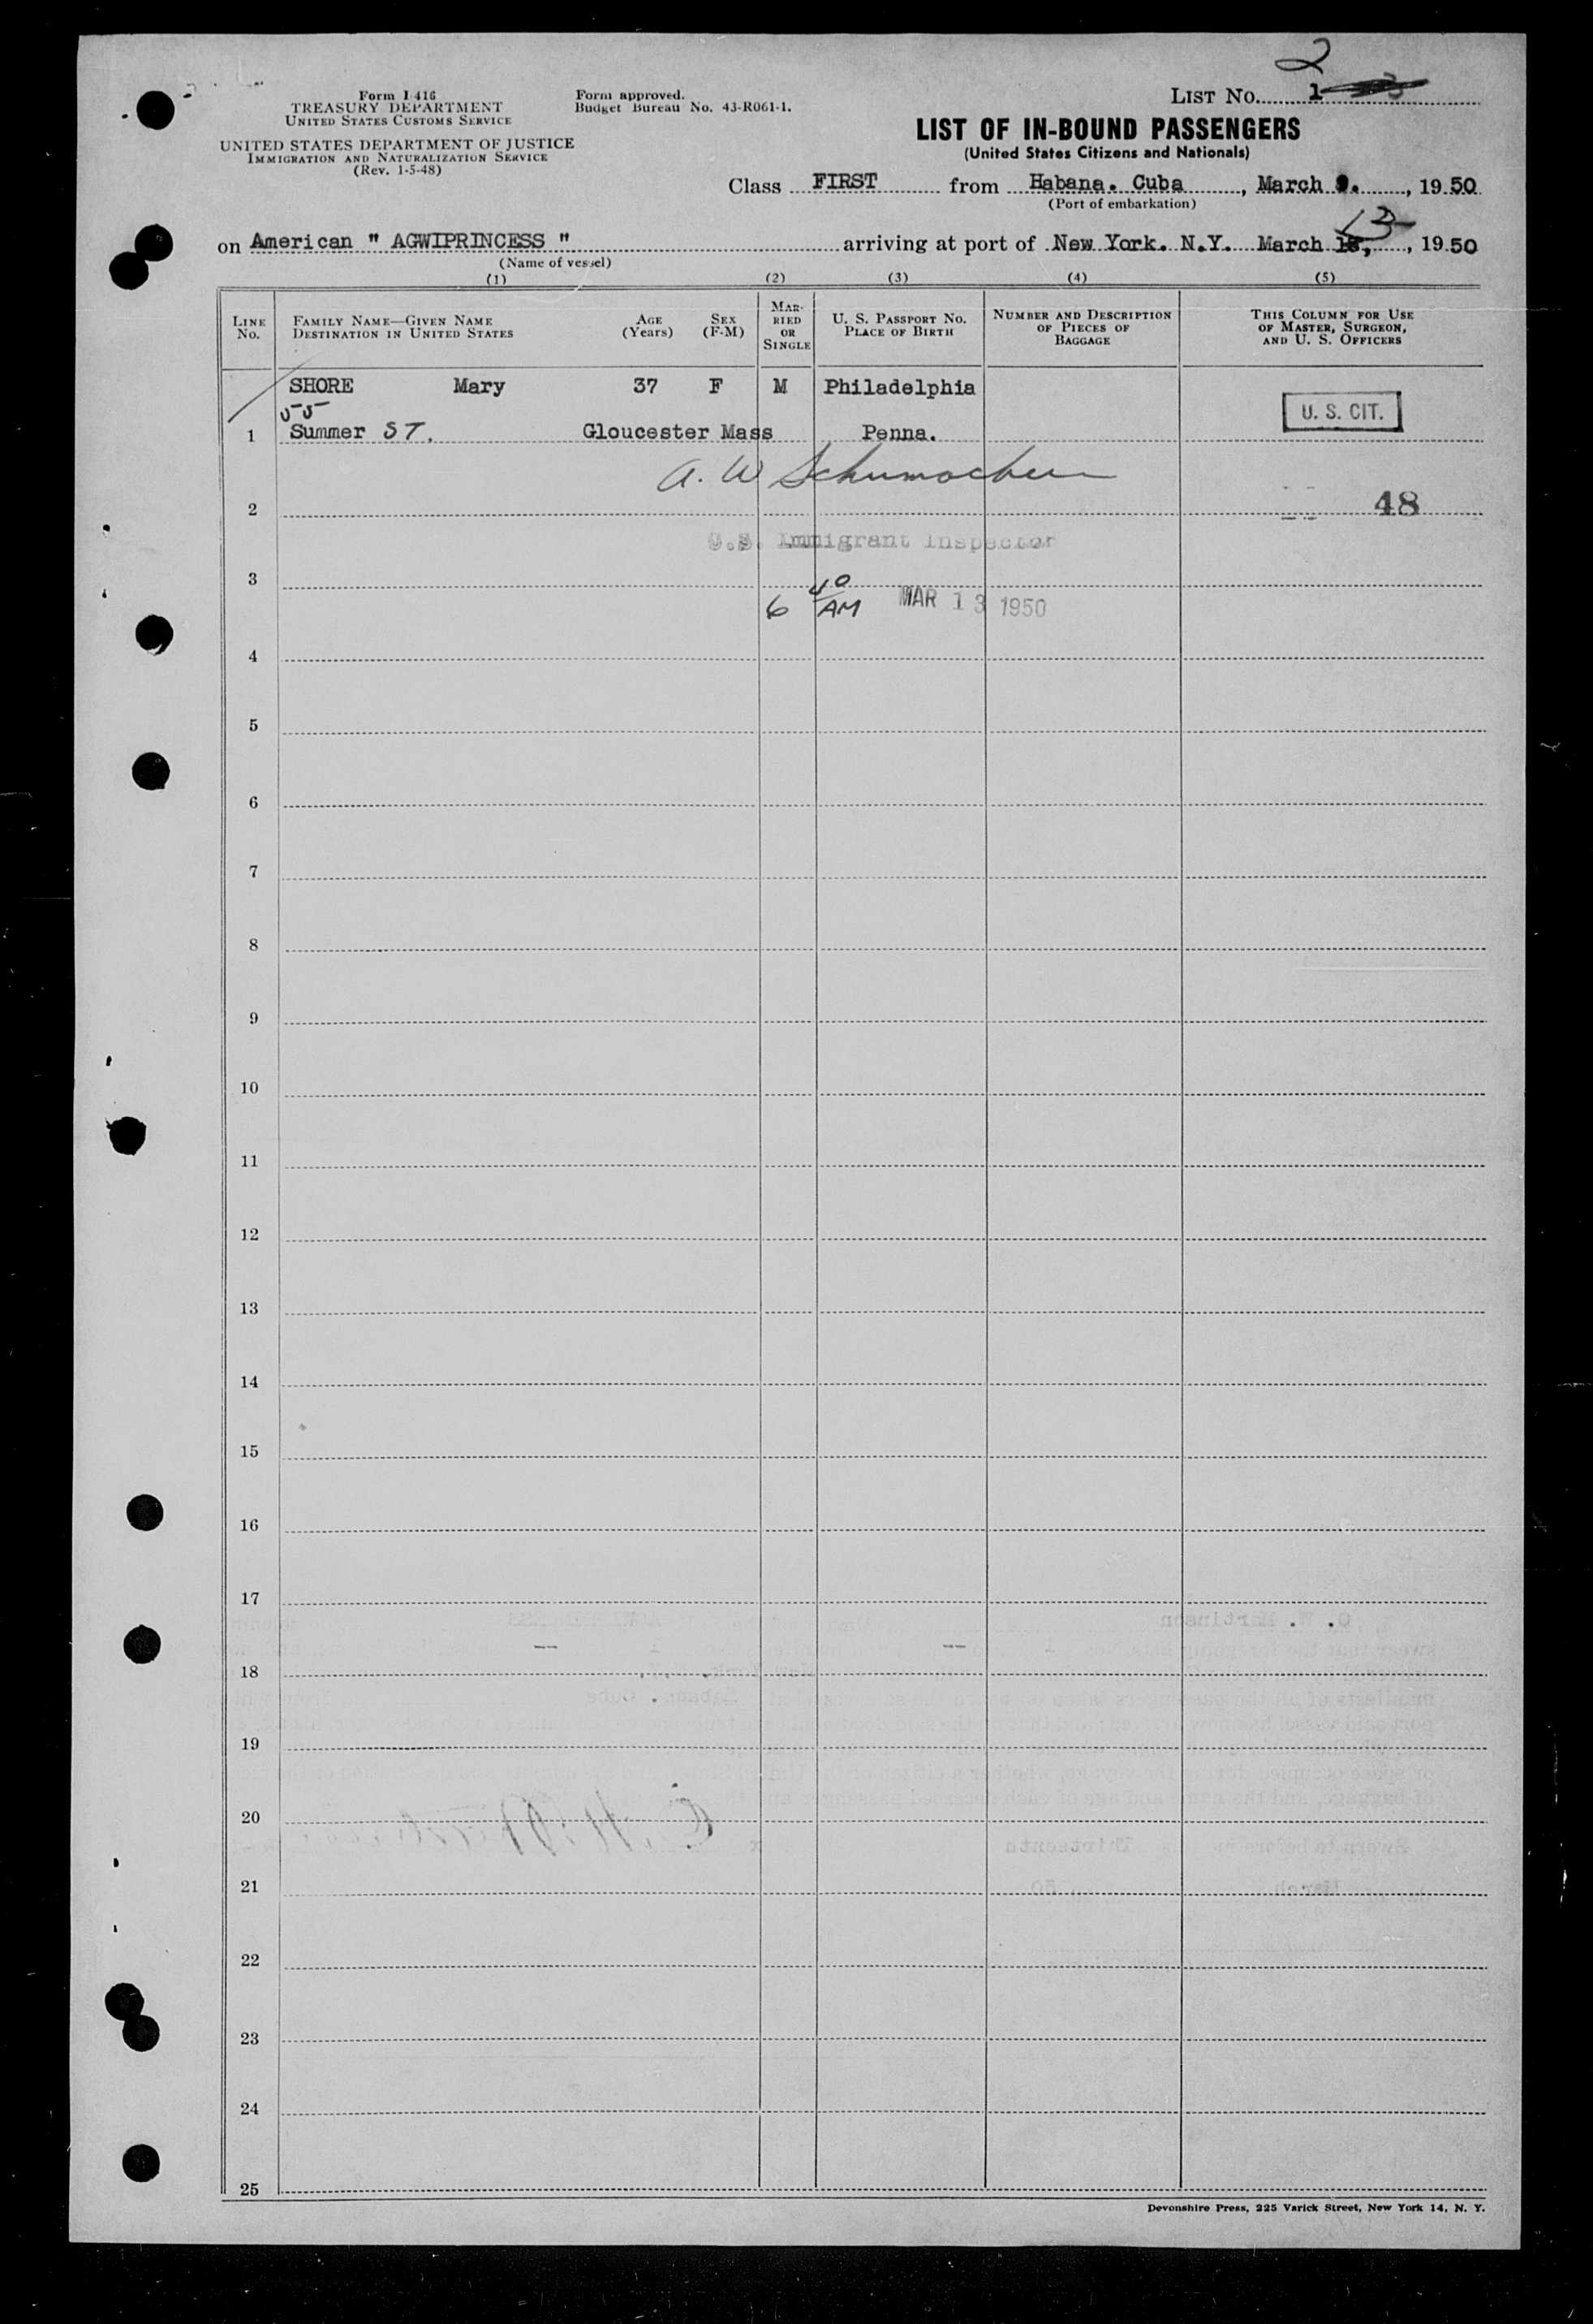 2
Form I 416
TREASURY DEPARTMENT
UNITED STATES CUSTOMS SERVICE
UNITED STATES DEPARTMENT OF JUSTICE
IMMIGRATION AND NATURALIZATION SERVICE
(Rev. 1-5-48)
Form approved.
Budget Bureau No. 43-R061-1.
LIST NO. 1
LIST OF IN-BOUND PASSENGERS
(United States Citizens and Nationals)
Class FIRST from Habana. Cuba, March 9., 1950
(Port of embarkation)
13
on American " AGWIPRINCESS " arriving at port of New York. N.Y. March, 1950
(Name of vessel)
(1) (2) (3) (4) (5)
LINE No. FAMILY NAME—GIVEN NAME DESTINATION IN UNITED STATES AGE (Years) SEX (F-M) MARRIED OR SINGLE U. S. PASSPORT NO. PLACE OF BIRTH NUMBER AND DESCRIPTION OF PIECES OF BAGGAGE THIS COLUMN FOR USE OF MASTER, SURGEON, AND U. S. OFFICERS
SHORE Mary 37 F M Philadelphia
55
U. S. CIT.
1 Summer ST. Gloucester Mass Penna.
A. W Schumacher
2 48
U.S. Immigrant Inspector
3
6 40 AM MAR 13 1950
4
5
6
7
8
9
10
11
12
13
14
15
16
17
18
19
20
21
22
23
24
25
Devonshire Press, 225 Varick Street, New York 14, N. Y.